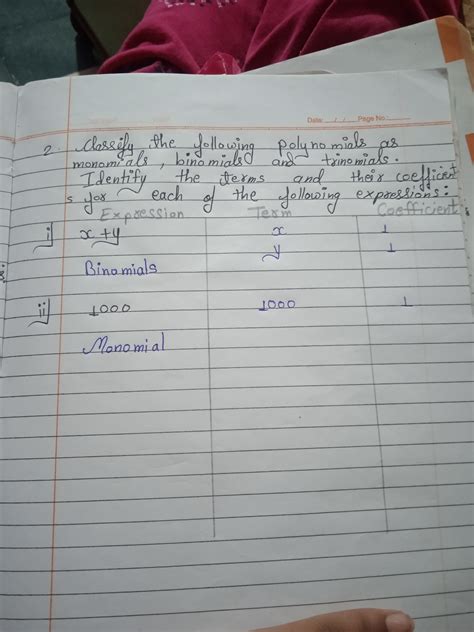 Date: / / Page No.:
2. Classify the following polynomials as
monomials, binomials and trinomials.
Identify the terms and their coefficient
s for each of the following expressions:
Expression Term Coefficient
i) x + y x 1
y 1
Binomials
ii) 1000 1000 1
Monomial